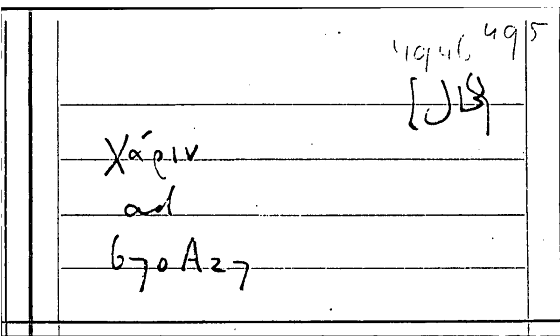 4946 495
χάριν
ad
670A27